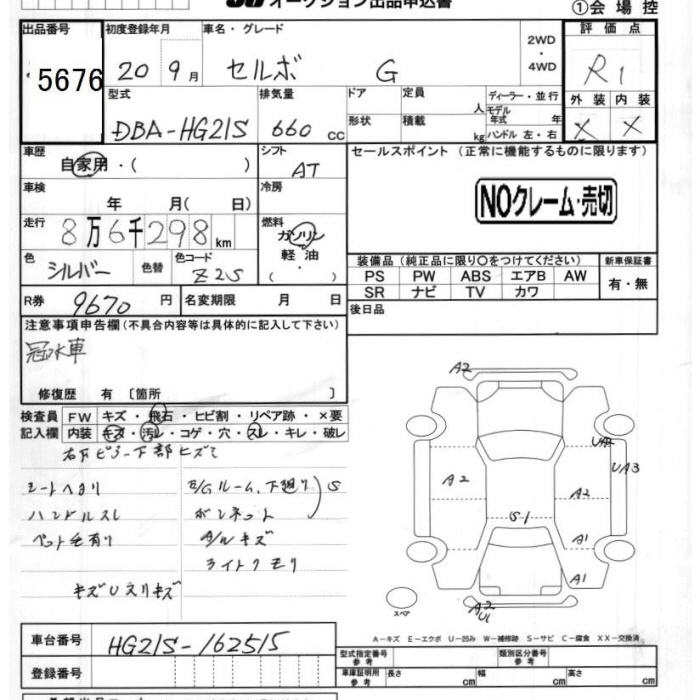 オークション出品申込書
①会場控
出品番号 初度登録年月 車名・グレード 2WD ・ 4WD 評価点
5676 20 9月 セルボ G R1
型式 排気量 ドア 定員 人 ディーラー・並行 外装 内装
モデル 年式 年
DBA-HG21S 660 cc 形状 積載 kg ハンドル 左・右 X X
車歴 シフト セールスポイント (正常に機能するものに限ります)
自家用・( ) AT
車検 冷房
年 月( 日) NOクレーム・売切
走行 燃料
8万6千298 km ガソリン
軽油
( ・ )
色 色替 色コード 装備品 (純正品に限り〇をつけてください) 新車保証書
シルバー Z2S PS PW ABS エアB AW 有・無
SR ナビ TV カワ
R券 9670 円 名変期限 月 日 後日品
注意事項申告欄 (不具合内容等は具体的に記入して下さい)
冠水車
修復歴 有 〔箇所 〕
検査員 FW キズ・飛石・ヒビ割・リペア跡・×要
記入欄 内装 キズ・汚レ・コゲ・穴・スレ・キレ・破レ
右Fピラー下部ヒズミ
シートヘタリ E/Gルーム、下廻り S
ハンドルスレ ボンネット
ペット毛有り A/Wキズ
ライトクモリ
キズUスリキズ
A2
UA2
UA3
A2
A2
S1
A1
A1
A2
UL
スペア
A-キズ E-エクボ U-凹み W-補修跡 S-サビ C-腐食 XX-交換済
車台番号 HG21S-162515
型式指定番号 参考 類別区分番号 参考
登録番号 車庫証明用 参考 長さ cm 幅 cm 高さ cm